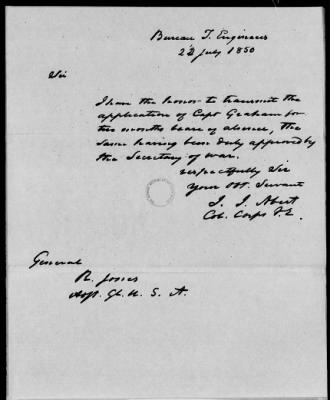 Bureau T. Engineers
22 July 1850
Sir
I have the honor to transmit the
application of Capt Graham for
two months leave of absence, the
same having been duly approved by
the Secretary of war.
respectfully Sir
Your Obt. Servant
J. J. Abert
Col. Corps T. E.
General
R. Jones
Adjt. Gl. U. S. A.